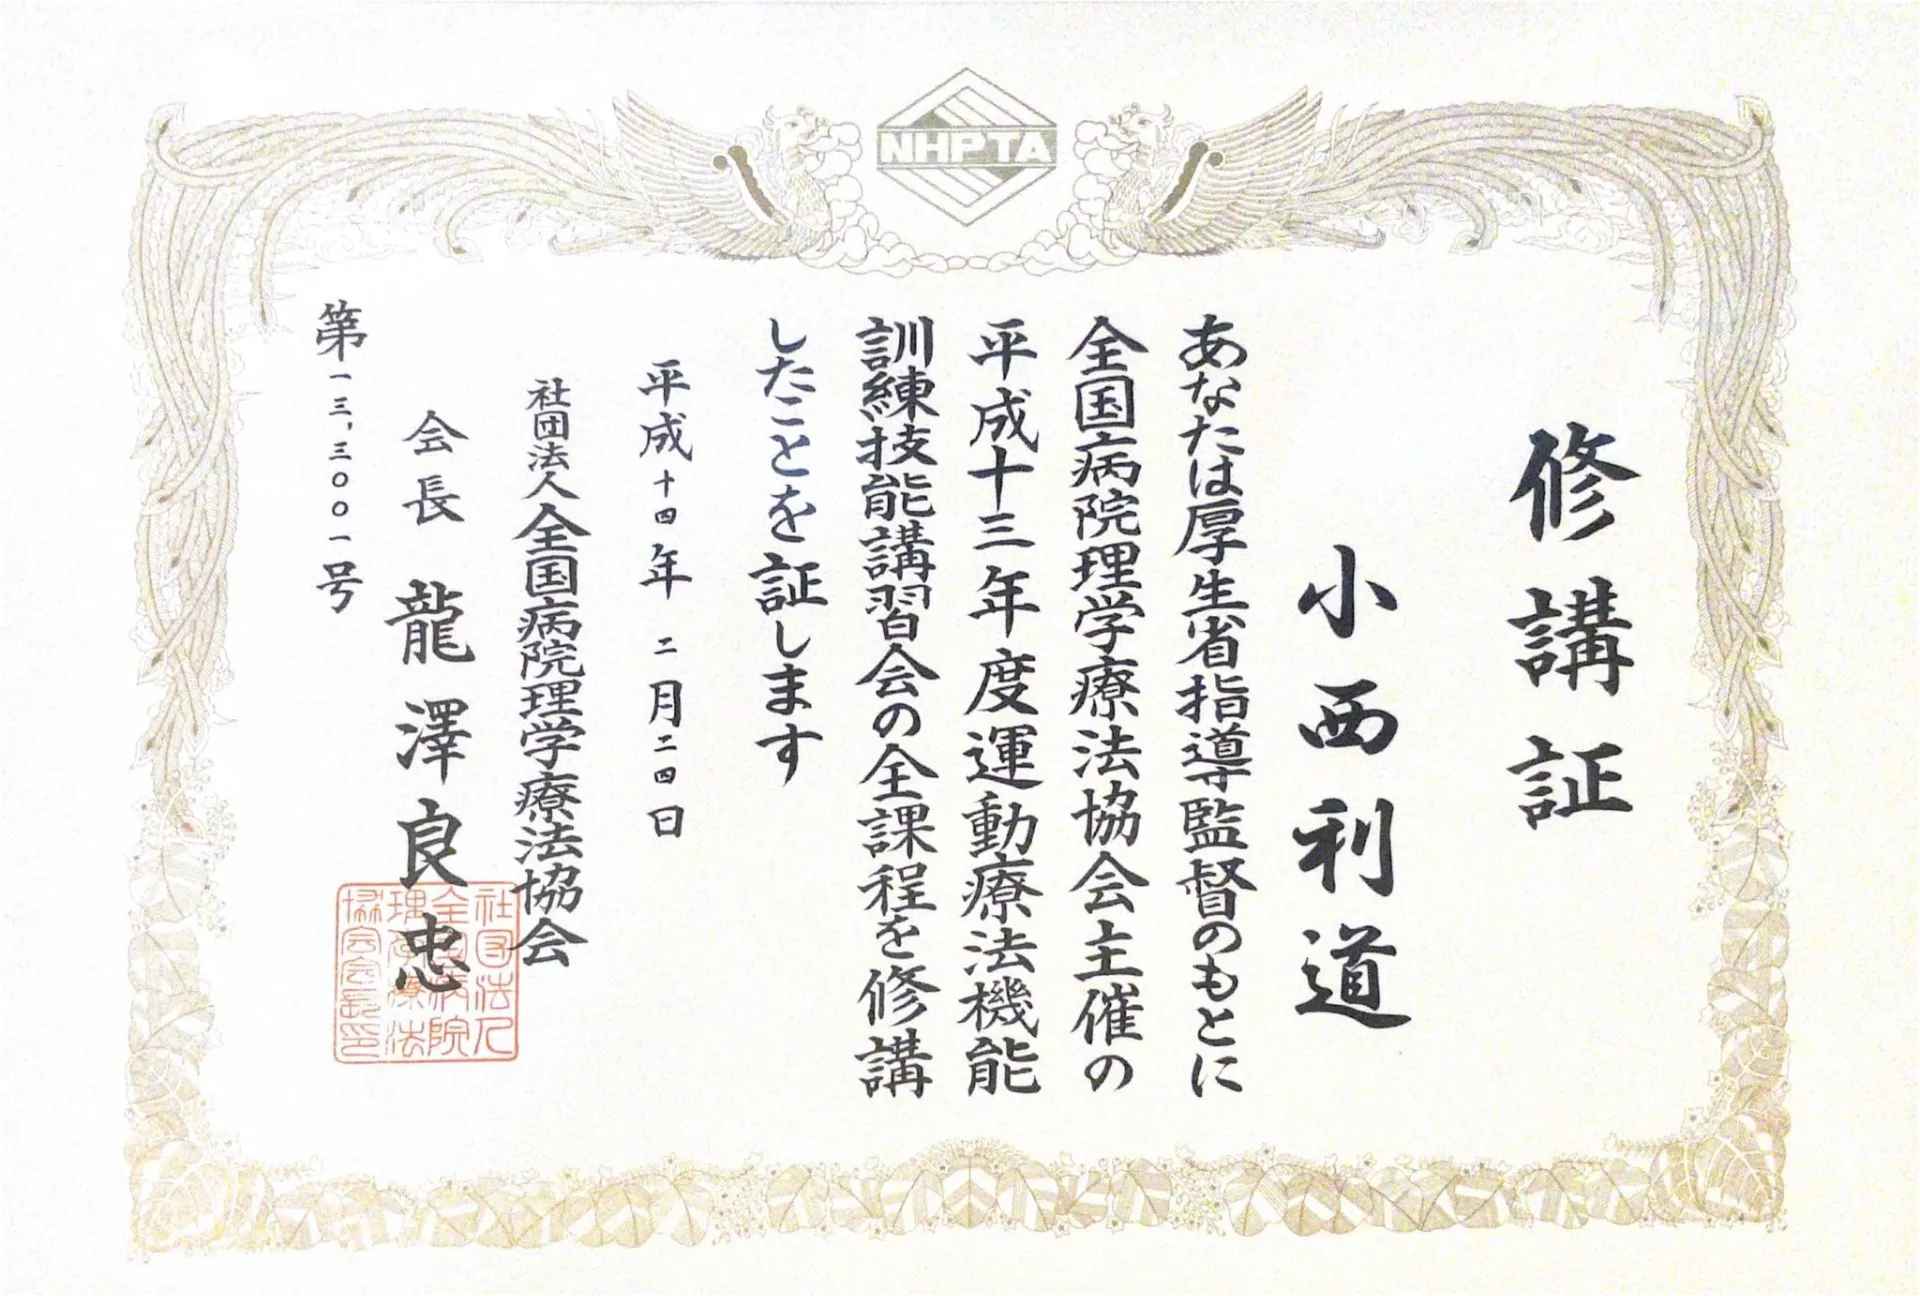 NHPTA
修講証
小西利道
あなたは厚生省指導監督のもとに
全国病院理学療法協会主催の
平成十三年度運動療法機能
訓練技能講習会の全課程を修講
したことを証します
平成十四年二月二四日
社団法人全国病院理学療法協会
会長 龍澤良忠
社団法人
全国病院
理学療法
協会会長印
第一三,三〇〇一号